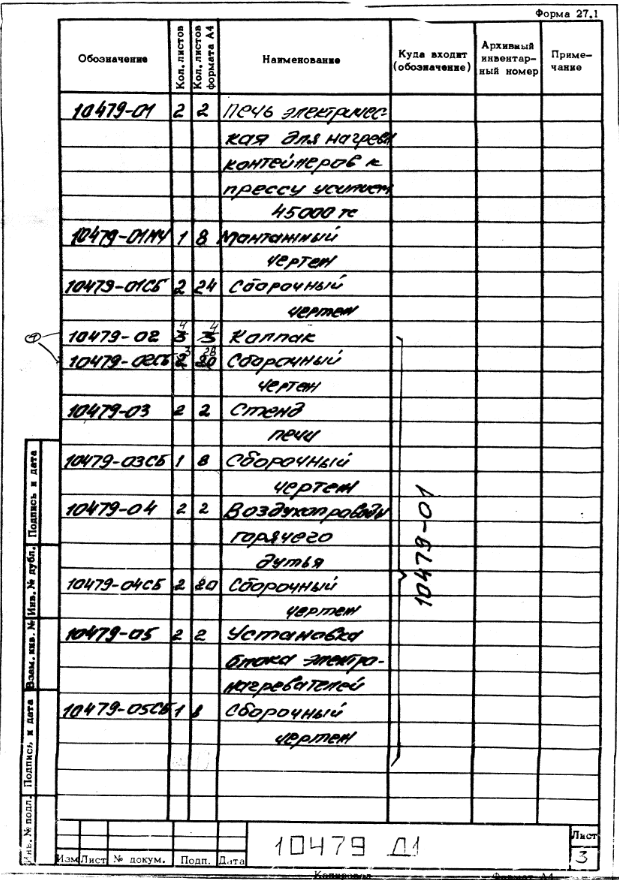 Форма 27.1
Обозначение Кол. листов Кол. листов формата А4 Наименование Куда входит (обозначение) Архивный инвентарный номер Примечание
10479-01 2 2 Печь электричес-
кая для нагрева
контейнеров к
прессу усилием
45000 тс
10479-01МЧ 1 8 Монтажный
чертеж
10479-01СБ 2 24 Сборочный
чертеж
4 4
10479-02 3 3 Колпак
3 28
10479-02СБ 2 20 Сборочный
чертеж
10479-03 2 2 Стенд
печи
10479-03СБ 1 8 Сборочный
чертеж
10479-04 2 2 Воздухопроводы
горячего
дутья
10479-04СБ 2 20 Сборочный
чертеж
10479-05 2 2 Установка
блока электро-
нагревателей
10479-05СБ 1 8 Сборочный
чертеж
10479-01
Подпись и дата
Инв. № дубл.
Взам. инв. №
Подпись и дата
Инв. № подл.
10479 Д1
Лист
3
Изм Лист № докум. Подп. Дата
Копировал Формат А4